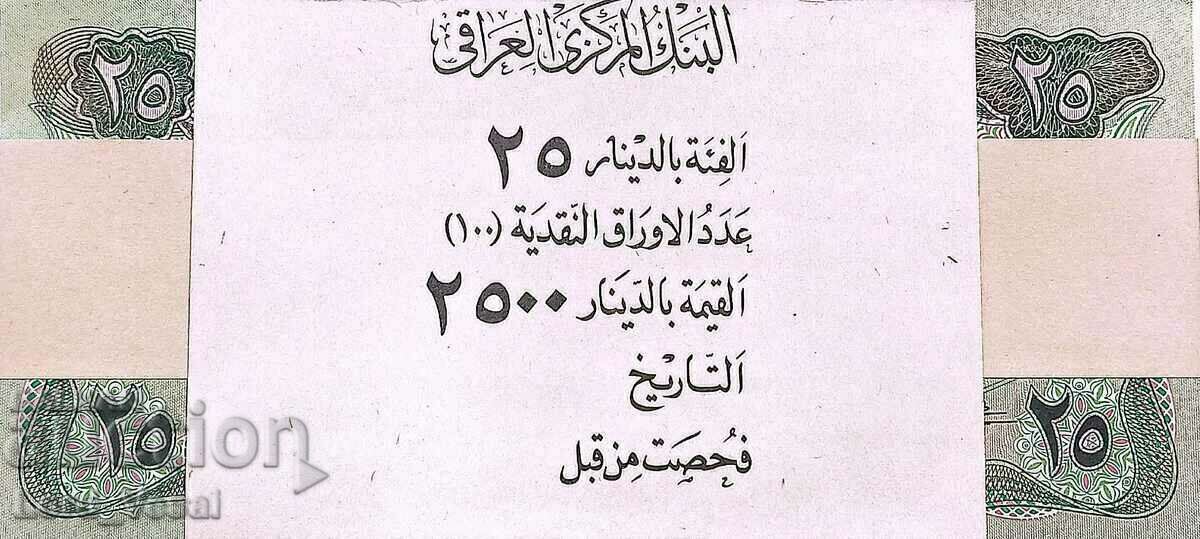 البنك المركزي العراقي
٢٥ ٢٥
الفئة بالدينار ٢٥
عدد الاوراق النقدية (١٠٠)
القيمة بالدينار ٢٥٠٠
التاريخ
فحصت من قبل
٢٥ ٢٥